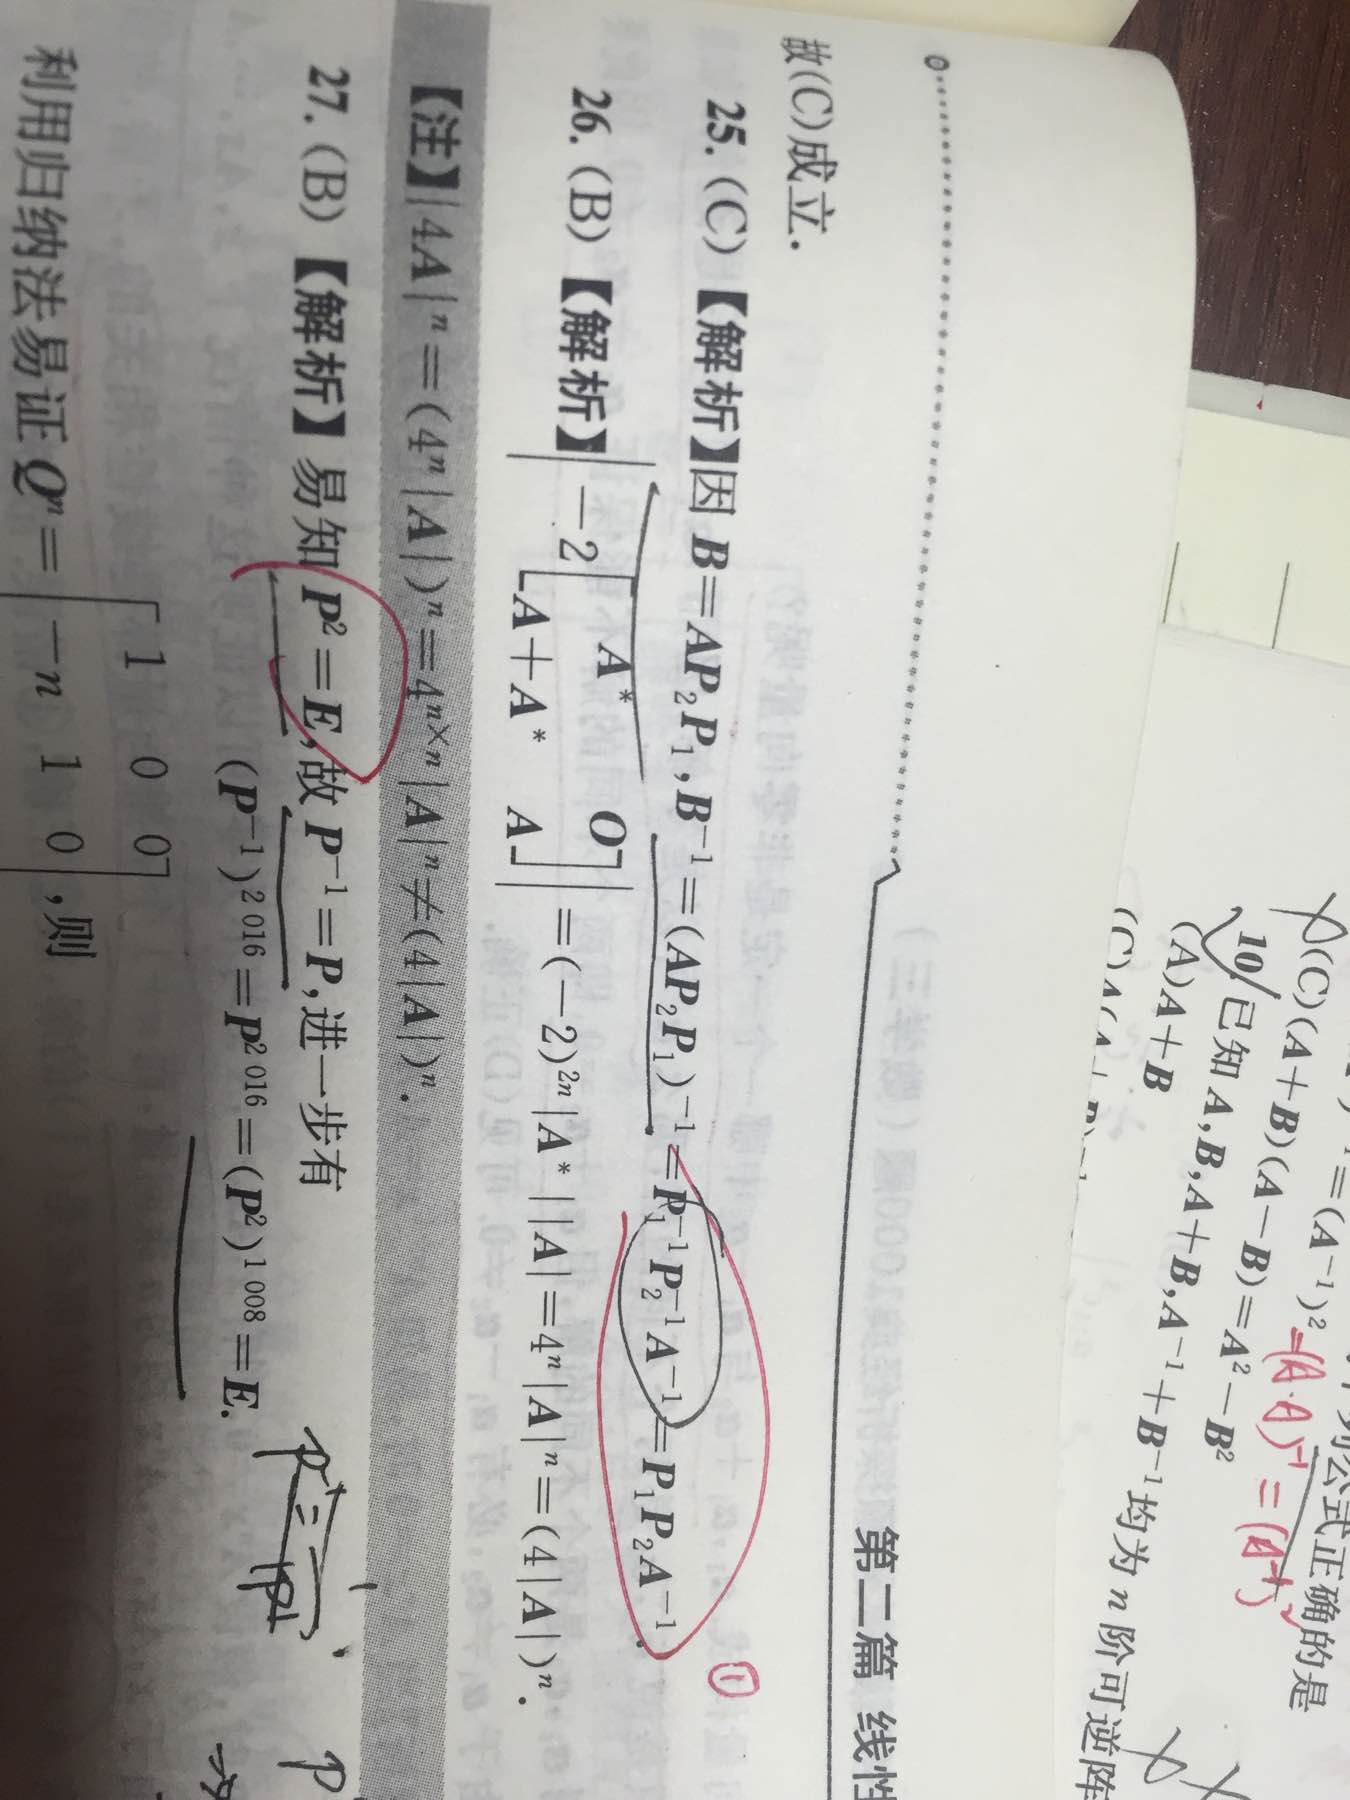 第二篇 线性
故(C)成立.
25.(C)【解析】因 B=AP₂P₁,B⁻¹=(AP₂P₁)⁻¹=P₁⁻¹P₂⁻¹A⁻¹=P₁P₂A⁻¹.
①
26.(B)【解析】|−2[A* O; A+A* A]|=(−2)²ⁿ|A*||A|=4ⁿ|A|ⁿ=(4|A|)ⁿ.
【注】|4A|ⁿ=(4ⁿ|A|)ⁿ=4ⁿˣⁿ|A|ⁿ≠(4|A|)ⁿ.
27.(B)【解析】易知 P²=E,故 P⁻¹=P,进一步有
(P⁻¹)²⁰¹⁶=P²⁰¹⁶=(P²)¹⁰⁰⁸=E.
利用归纳法易证 Qⁿ=[1 0 0; −n 1 0],则
公式正确的是
=(A⁻¹)²
(C)(A+B)(A−B)=A²−B²
10 已知 A,B,A+B,A⁻¹+B⁻¹均为 n 阶可逆阵
(A)A+B